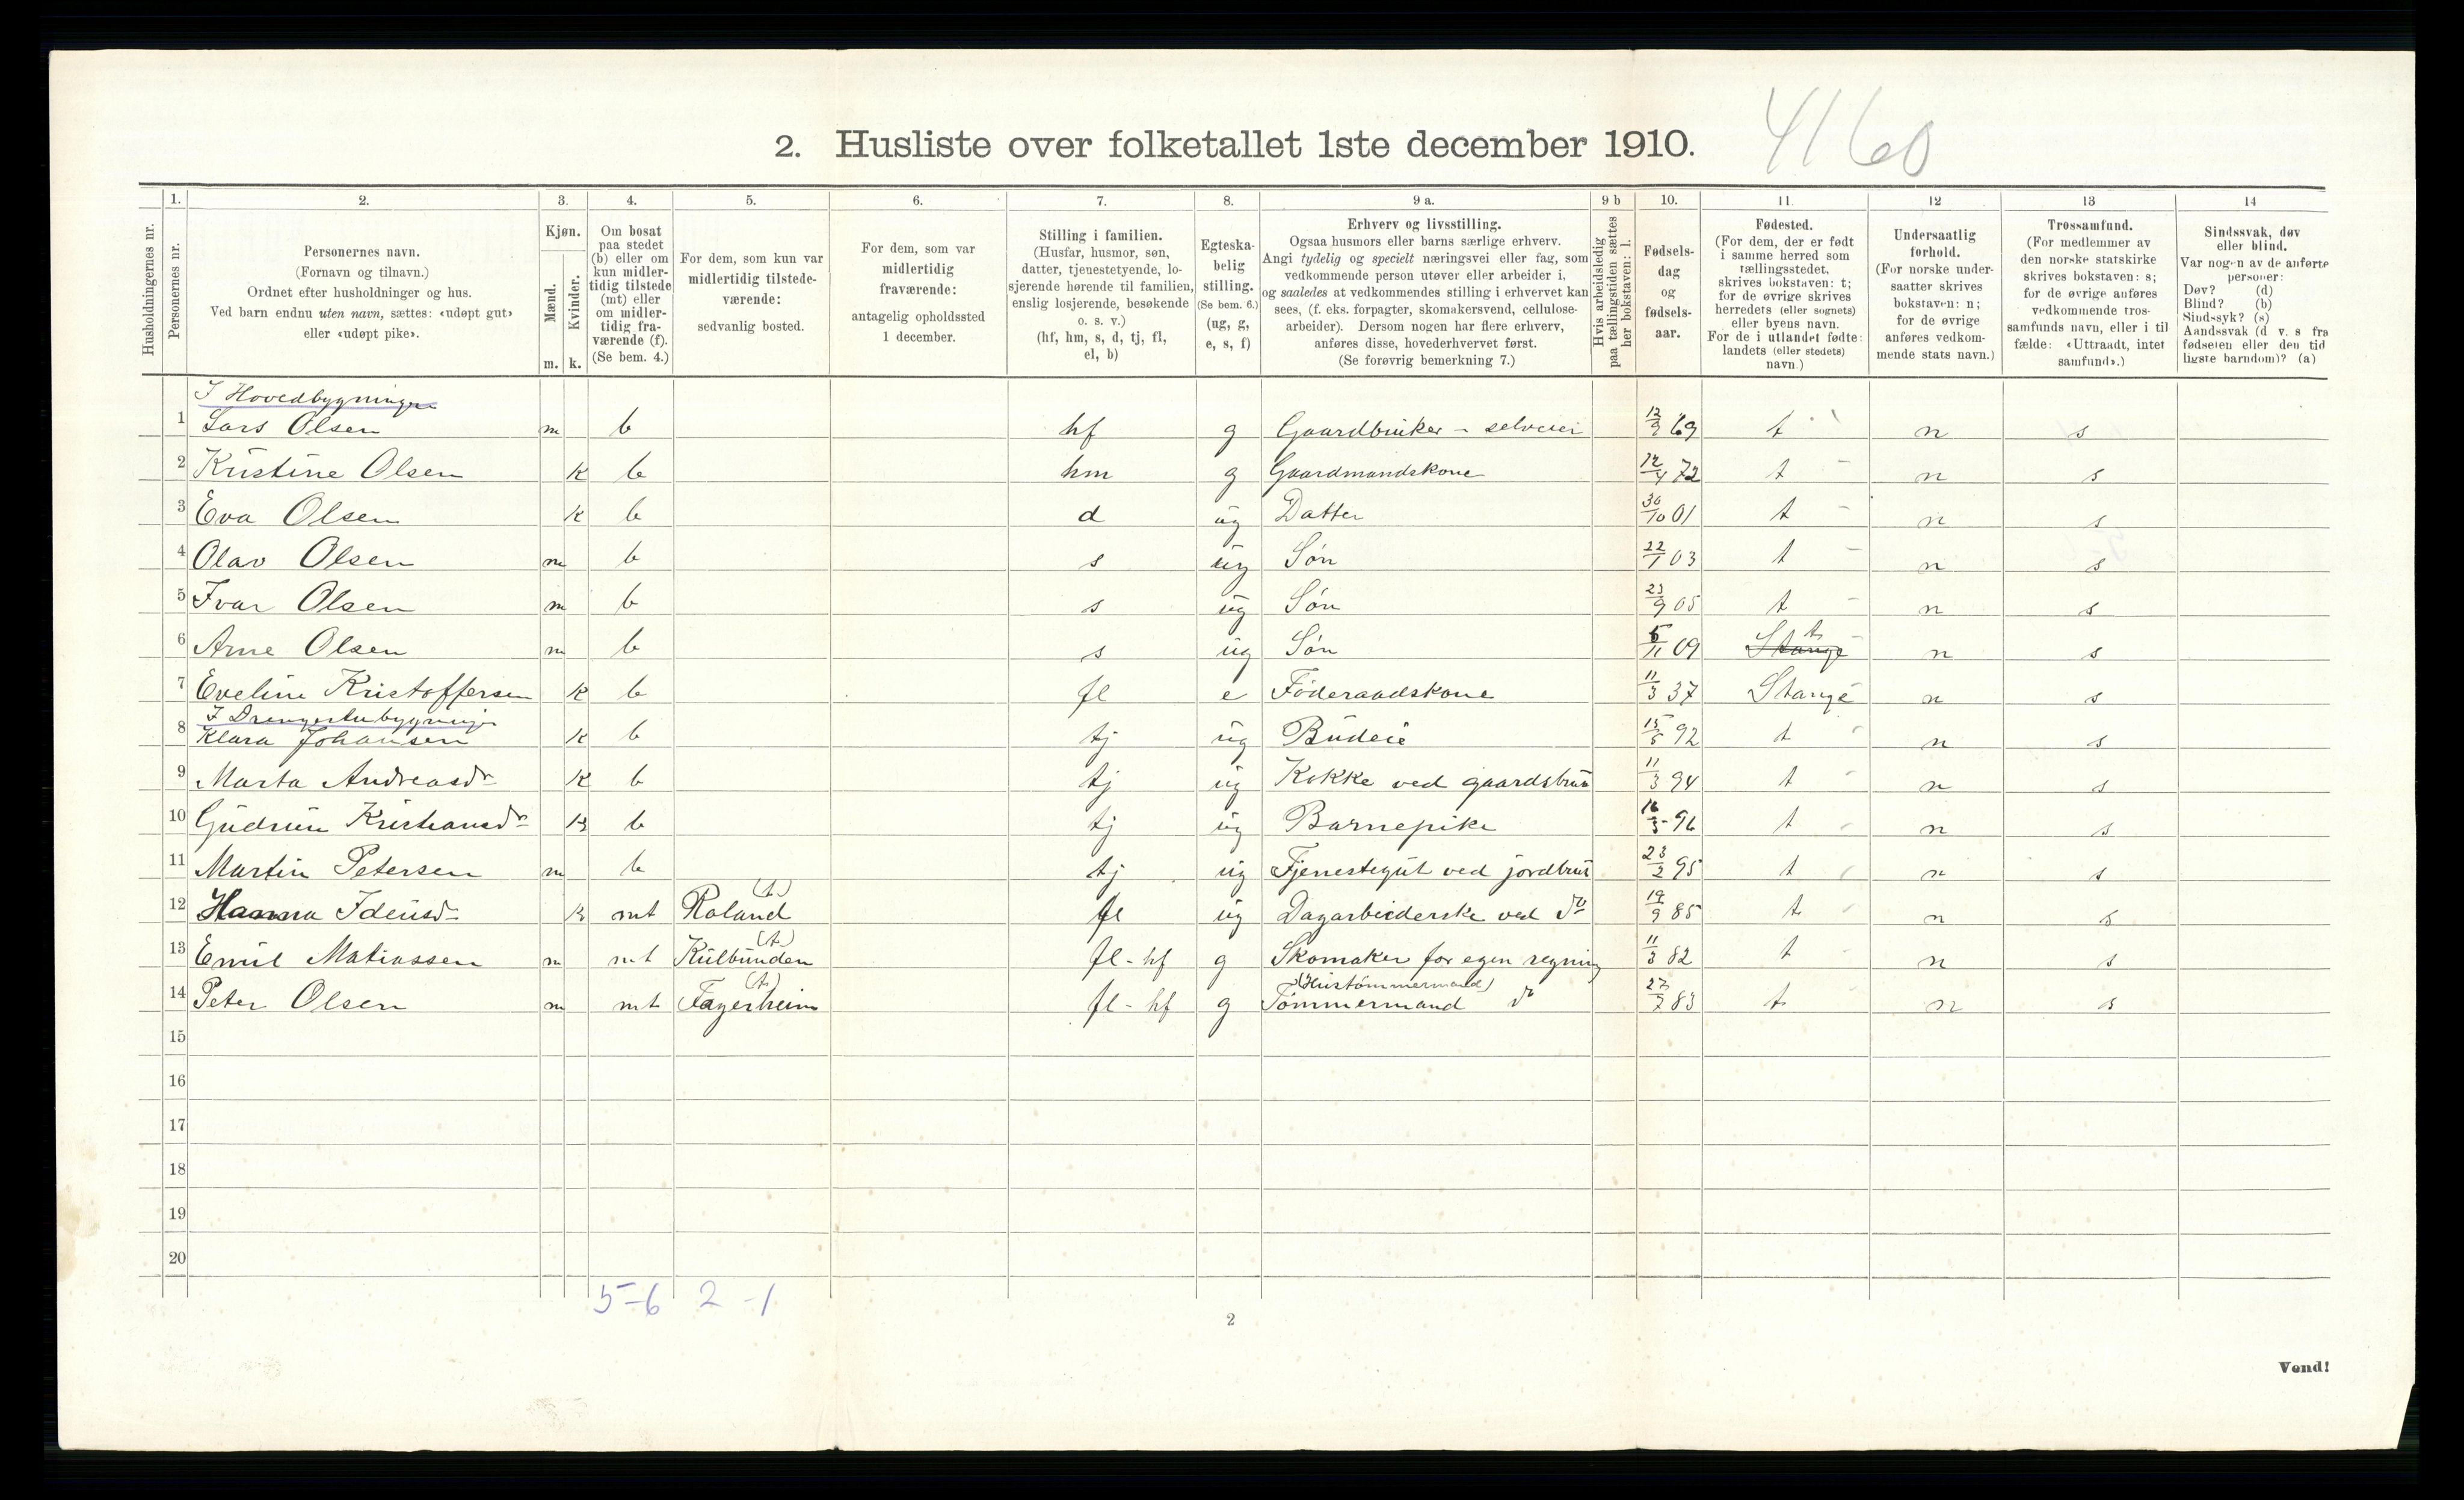 2. Husliste over folketallet 1ste december 1910. 4160
Husholdningernes nr.
1. Personernes nr.
2. Personernes navn.
(Fornavn og tilnavn.)
Ordnet efter husholdninger og hus.
Ved barn endnu uten navn, sættes: «udøpt gut»
eller «udøpt pike».
3. Kjøn.
Mænd. m.
Kvinder. k.
4. Om bosat
paa stedet
(b) eller om
kun midler-
tidig tilstede
(mt) eller
om midler-
tidig fra-
værende (f).
(Se bem. 4.)
5. For dem, som kun var
midlertidig tilstede-
værende:
sedvanlig bosted.
6. For dem, som var
midlertidig
fraværende:
antagelig opholdssted
1 december.
7. Stilling i familien.
(Husfar, husmor, søn,
datter, tjenestetyende, lo-
sjerende hørende til familien,
enslig losjerende, besøkende
o. s. v.)
(hf, hm, s, d, tj, fl,
el, b)
8. Egteska-
belig
stilling.
(Se bem. 6.)
(ug, g,
e, s, f)
9 a. Erhverv og livsstilling.
Ogsaa husmors eller barns særlige erhverv.
Angi tydelig og specielt næringsvei eller fag, som
vedkommende person utøver eller arbeider i,
og saaledes at vedkommendes stilling i erhvervet kan
sees, (f. eks. forpagter, skomakersvend, cellulose-
arbeider). Dersom nogen har flere erhverv,
anføres disse, hovederhvervet først.
(Se forøvrig bemerkning 7.)
9 b Hvis arbeidsledig
paa tællingstiden sættes
her bokstaven: l.
10. Fødsels-
dag
og
fødsels-
aar.
11. Fødested.
(For dem, der er født
i samme herred som
tællingsstedet,
skrives bokstaven: t;
for de øvrige skrives
herredets (eller sognets)
eller byens navn.
For de i utlandet fødte:
landets (eller stedets)
navn.)
12 Undersaatlig
forhold.
(For norske under-
saatter skrives
bokstaven: n;
for de øvrige
anføres vedkom-
mende stats navn.)
13 Trossamfund.
(For medlemmer av
den norske statskirke
skrives bokstaven: s;
for de øvrige anføres
vedkommende tros-
samfunds navn, eller i til
fælde: «Uttraadt, intet
samfund».)
14 Sindssvak, døv
eller blind.
Var nogen av de anførte
personer:
Døv? (d)
Blind? (b)
Sindssyk? (s)
Aandssvak (d v. s fra
fødselen eller den tid
ligste barndom)? (a)
I Hovedbygningen
1 Lars Olsen m b hf g Gaardbruker - selveier 12/9 69 t n s
2 Kristine Olsen k b hm g Gaardmandskone 12/4 72 t n s
3 Eva Olsen k b d ug Datter 30/10 01 t n s
4 Olav Olsen m b s ug Søn 22/1 03 t n s
5 Ivar Olsen m b s ug Søn 23/9 05 t n s
6 Arne Olsen m b s ug Søn 5/11 09 Stange t n s
7 Eveline Kristoffersen k b fl e Føderaadskone 11/3 37 Stange n s
I Drengestubygningen
8 Klara Johansen k b tj ug Budeie 15/5 92 t n s
9 Marta Andreasdr k b tj ug Kokke ved gaardsbruk 11/3 94 t n s
10 Gudrun Kristiansdr k b tj ug Barnepike 16/3 96 t n s
11 Martin Petersen m b tj ug Tjenestegut ved jordbruk 23/2 95 t n s
12 Hanna k mt Roland (t) fl ug Dagarbeiderske ved do 19/9 85 t n s
13 Emil Matiassen m mt Kulbunden (t) fl - hf g Skomaker for egen regning 11/3 82 t n s
14 Peter Olsen m mt Fagerheim (t) fl - hf g (Hustømmermand) Tømmermand do 27/7 83 t n s
15
16
17
18
19
20
5-6 2-1
2
Vend!